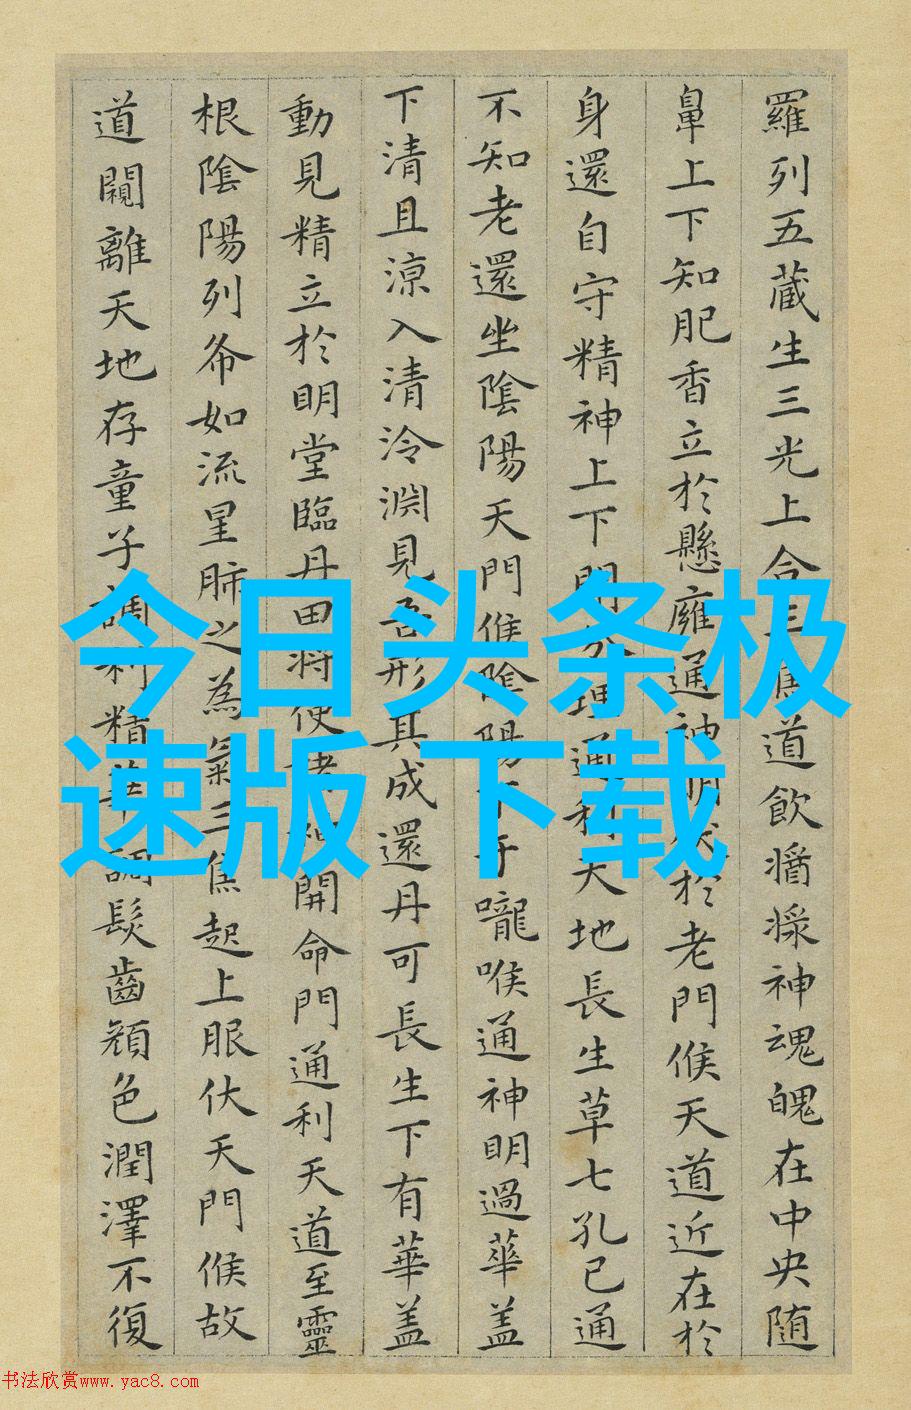 羅列五藏生三光上合三焦道飲醬漿神魂魄在中央随
鼻上下知肥香立於懸廱通神明伏於老門候天道近在於
身還自守精神上下開分理通利天地長生草七孔已通
不知老還坐陰陽天門候陰陽下于嚨喉通神明過華盖
下清且涼入清泠淵見吾形其成還丹可長生下有華盖
動見精立於明堂臨丹田将使諸神開命門通利天道至靈
根陰陽列布如流星肺之為氣三焦起上服伏天門候故
道闚離天地存童子調利精華調髮齒顔色潤澤不復
今日头条极
速版 下载
书法欣赏www.yac8.com